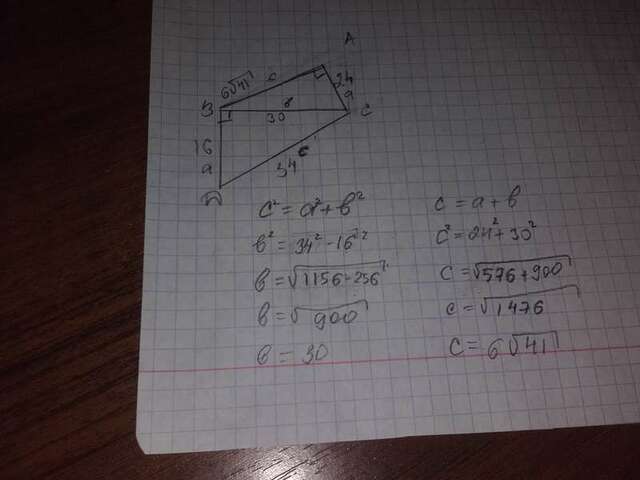 A
6√41 c 24
a
B в C
30
16
a 34 c
D
c² = a² + в²
в² = 34² - 16²
в = √1156 - 256
в = √900
в = 30
c = a + в
c² = 24² + 30²
c = √576 + 900
c = √1476
c = 6√41